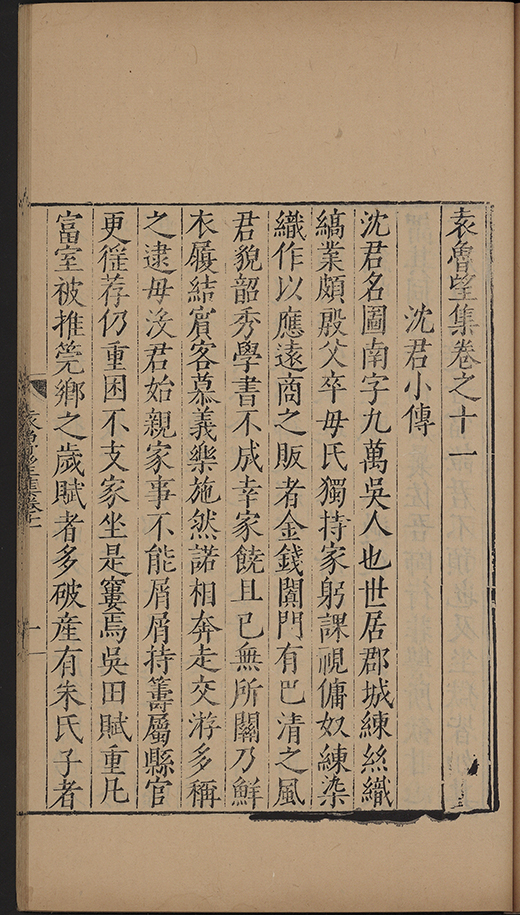 袁魯望集卷之十一
沈君小傳
沈君名圖南字九萬吳人也世居郡城練絲織
縞業頗殷父卒母氏獨持家躬課視傭奴練染
織作以應遠商之販者金錢闐門有巴清之風
君貌韶秀學書不成幸家饒且已無所關乃鮮
衣履結賓客慕義樂施然諾相奔走交游多稱
之逮母沒君始親家事不能屑屑持籌屬縣官
更徭荐仍重困不支家坐是窶焉吳田賦重凡
富室被推筦鄉之歲賦者多破產有朱氏子者